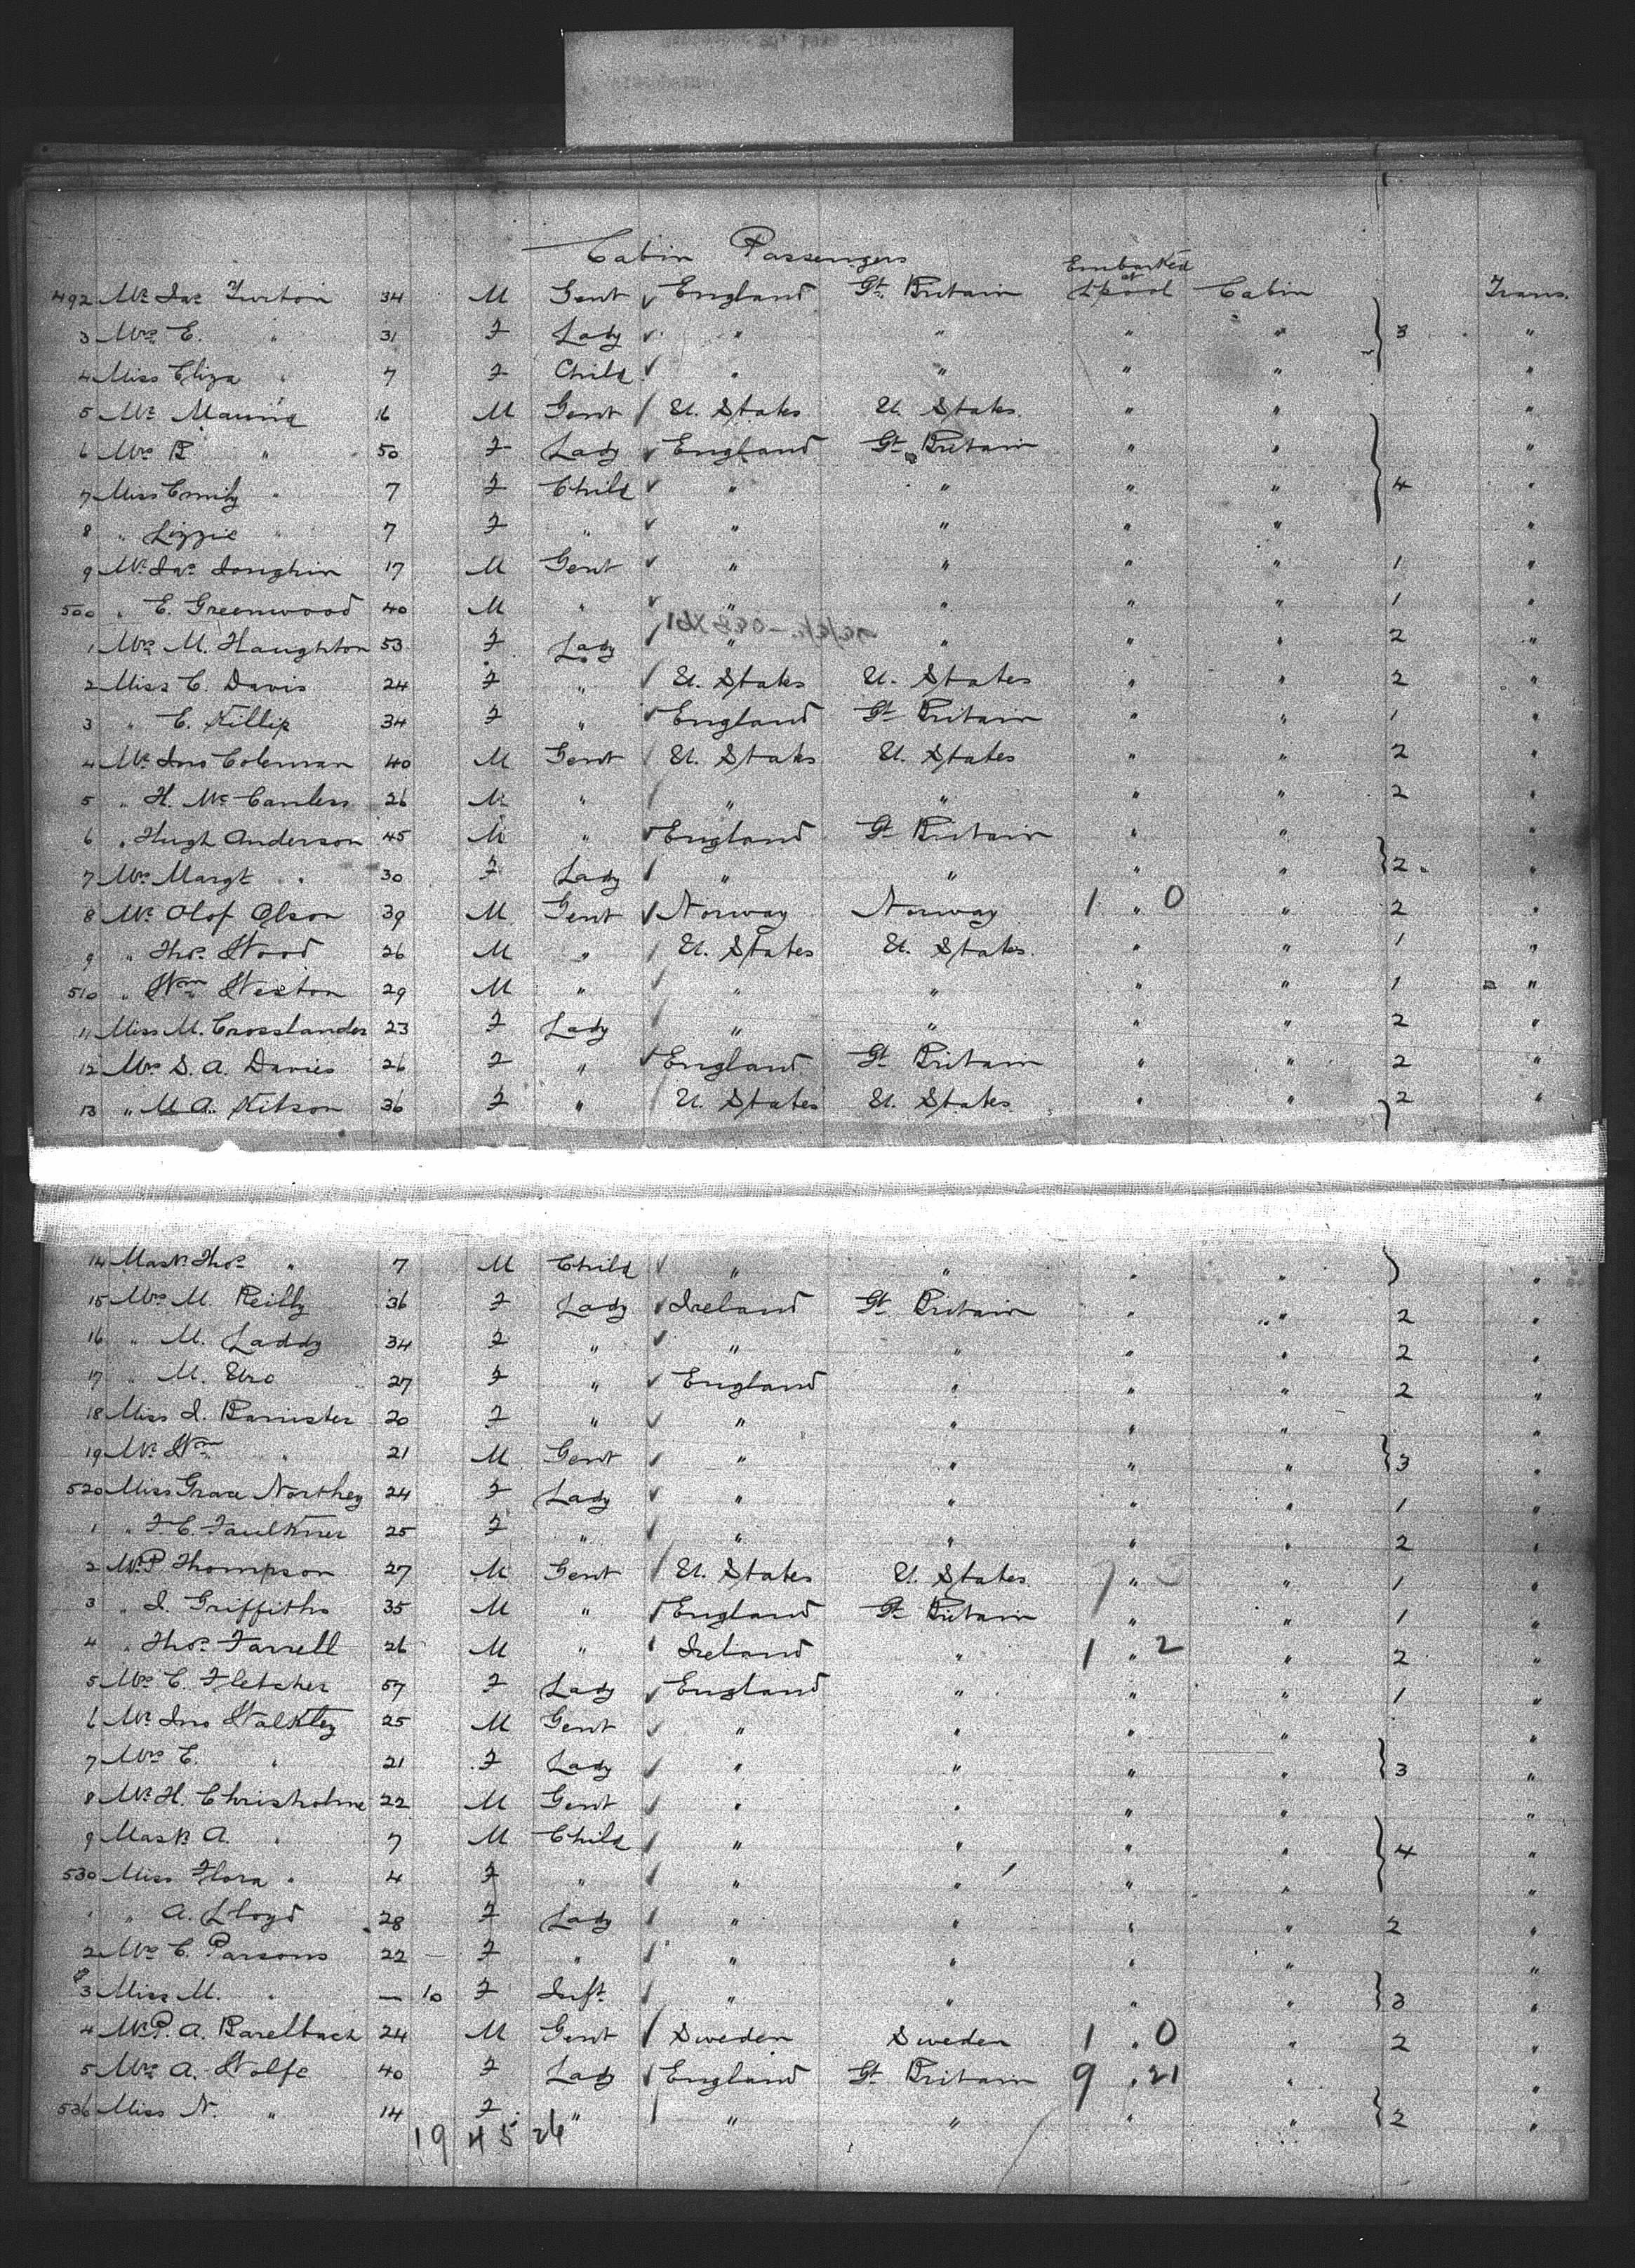 Cabin Passengers
Embarked at
492 Mr Jas Turton 34 M Gent England Gt Britain Lpool Cabin Trans.
3 Mrs E. " 31 F Lady " " " " 3 "
4 Miss Eliza " 7 F Child " " " " "
5 Mr 16 M Gent U. States U. States " " "
6 Mrs B " 50 F Lady England Gt Britain " " "
7 Miss Emily " 7 F Child " " " " 4 "
8 " Lizzie " 7 F " " " " " "
9 Mr Jas 17 M Gent " " " " 1 "
500 " E. Greenwood 40 M " " " " " 1 "
1 Mrs M. Haughton 53 F Lady " " " " 2 "
2 Miss C. Davis 24 F " U. States U. States " " 2 "
3 " E. Killip 34 F " England Gt Britain " " 1 "
4 Mr Jno Coleman 40 M Gent U. States U. States " " 2 "
5 " H. McCanless 26 M " " " " " 2 "
6 " Hugh Anderson 45 M " England Gt Britain " " "
7 Mrs Margt " 30 F Lady " " " " 2 "
8 Mr Olof Olson 39 M Gent Norway Norway 1 " 0 " 2 "
9 " Thos Wood 26 M " U. States U. States " " 1 "
510 " Wm Weston 29 M " " " " " 1 "
11 Miss M. Crosslander 23 F Lady " " " " 2 "
12 Mrs S. A. Davies 26 F " England Gt Britain " " 2 "
13 " M. A. Kitson 36 F " U. States U. States " " 2 "
14 Mastr Thos " 7 M Child " " " " "
15 Mrs M. Reilly 36 F Lady Ireland Gt Britain " " 2 "
16 " M. Laddy 34 F " " " " " 2 "
17 " M. Uro 27 F " England " " " 2 "
18 Miss J. Bannister 20 F " " " " " "
19 Mr Wm " 21 M Gent " " " " 3 "
520 Miss Grace Northey 24 F Lady " " " " 1 "
1 " F. E. Faulkner 25 F " " " " " 2 "
2 Mr P Thompson 27 M Gent U. States U. States " " 1 "
3 " J. Griffiths 35 M " England Gt Britain " " 1 "
4 " Thos Farrell 26 M " Ireland " 1 " 2 " 2 "
5 Mrs E. Fletcher 57 F Lady England " " " 1 "
6 Mr Jno Walkley 25 M Gent " " " " "
7 Mrs E. " 21 F Lady " " " " 3 "
8 Mr H. Chrisholme 22 M Gent " " " " "
9 Mastr A. " 7 M Child " " " " 4 "
530 Miss Flora " 4 F " " " " " "
1 " A. Lloyd 28 F Lady " " " " 2 "
2 Mrs E. Parsons 22 F " " " " " "
3 Miss M. " — 10 F Inft " " " " 3 "
4 Mr P. A. Barelbach 24 M Gent Sweden Sweden 1 " 0 " 2 "
5 Mrs A. Wolfe 40 F Lady England Gt Britain 9 " 21 " "
536 Miss N. " 14 F " " " " " 2 "
19 45 26